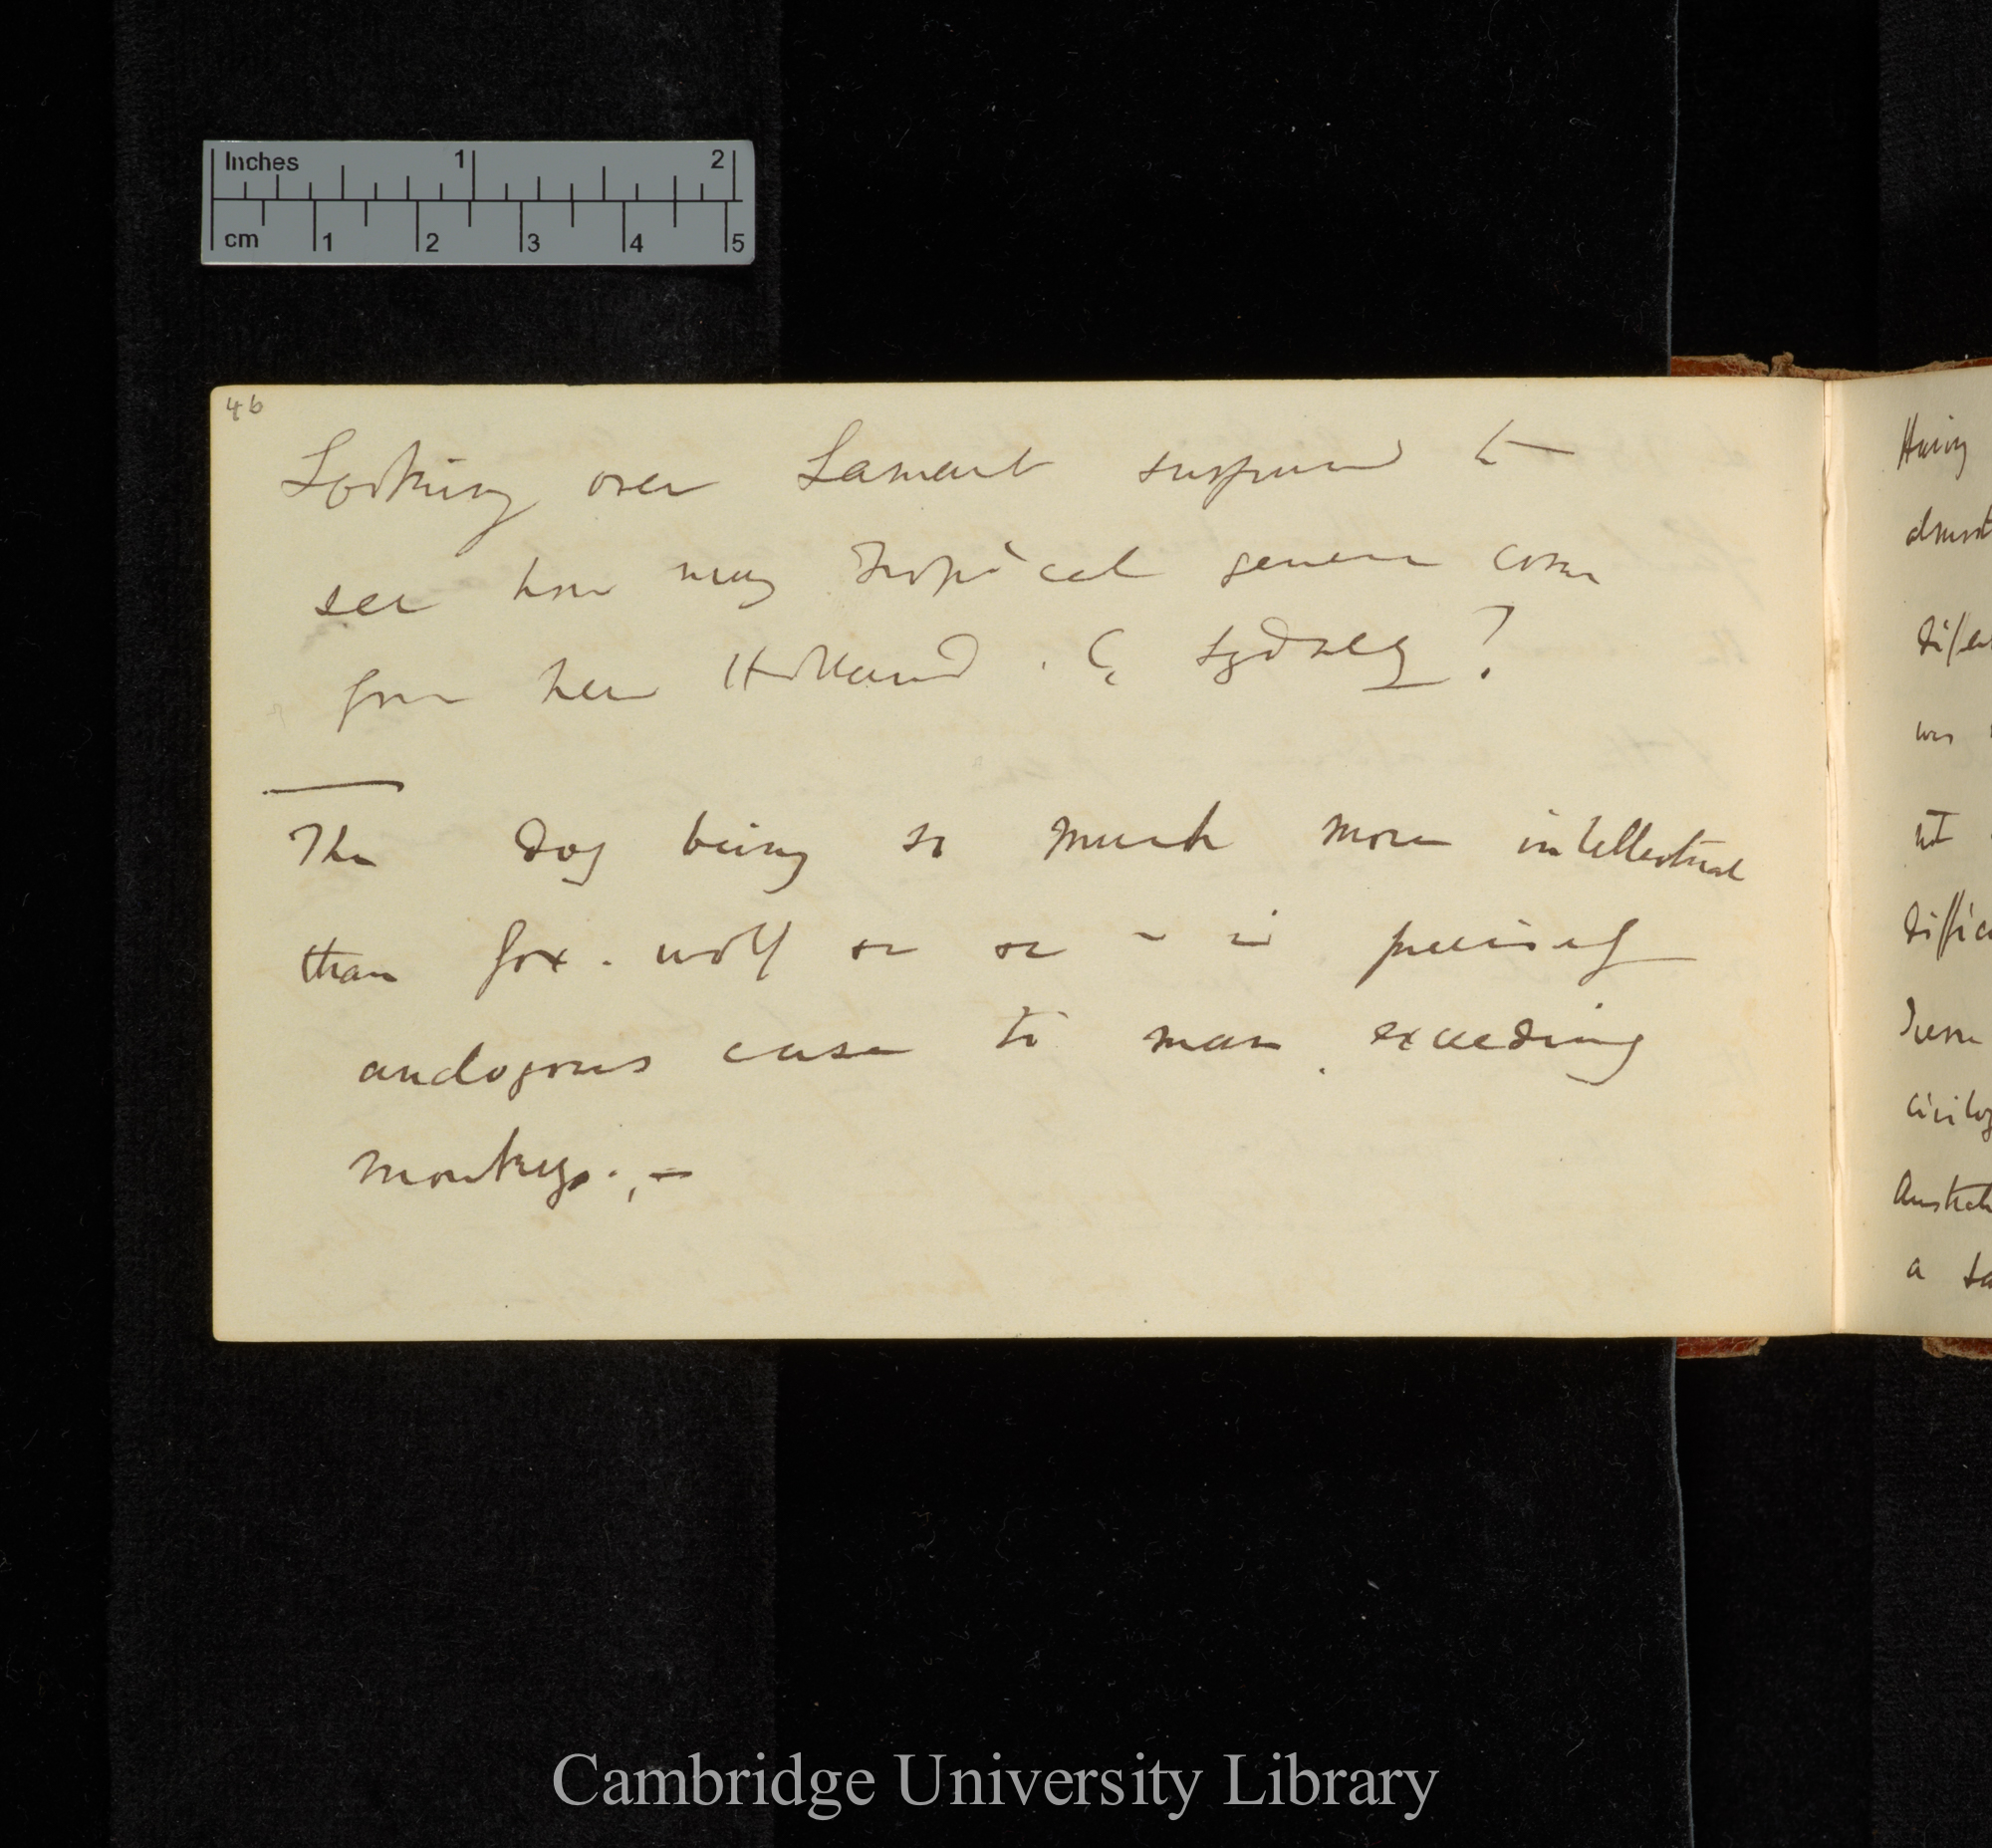 Inches 1 2
cm 1 2 3 4 5
46
Looking over Lamarck surprised to
see how many Tropical genera come
from New Holland. & Sydney?
The Dog being so much more intellectual
than fox. wolf &c &c — is precisely
analogous case to man. exceeding
monkeys.—
Having
almost
was
not
a
Cambridge University Library